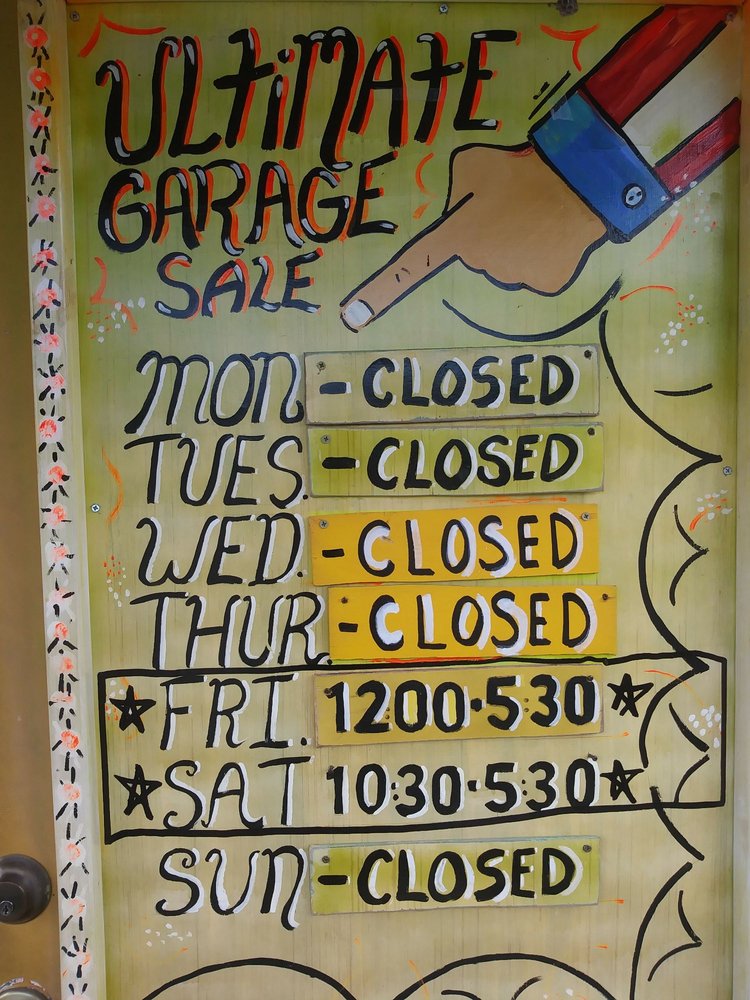 ULTIMATE
GARAGE
SALE
MON -CLOSED
TUES. -CLOSED
WED. -CLOSED
THUR. -CLOSED
★ FRI. 12:00-5:30 ★
★ SAT 10:30-5:30 ★
SUN -CLOSED